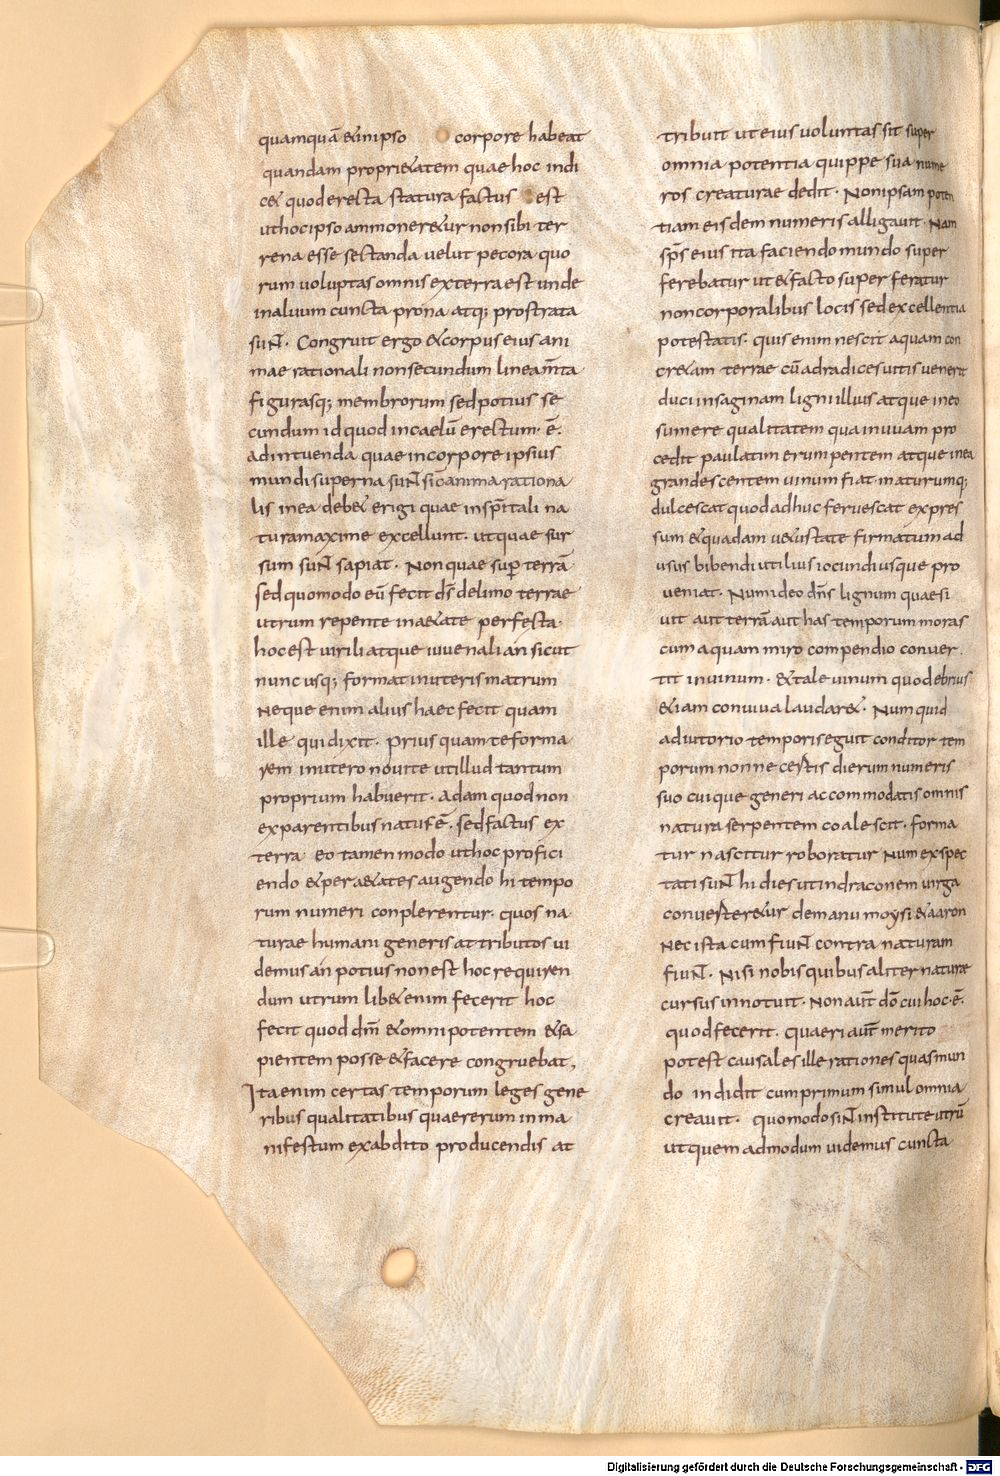 quamquā & in ipso corpore habeat
quandam propri&atem quae hoc indi
c& quod erecta statura factus est
ut hoc ipso ammoner&ur non sibi ter
rena esse sectanda uelut pecora quo
rum uoluptas omnis ex terra est unde
in aluum cuncta prona atq; prostrata
suN̄. Congruit ergo & corpus eius ani
mae rationali non secundum lineam̄ta
figurasq; membrorum sed potius se
cundum id quod in caelū erectum. ē.
ad intuenda quae in corpore ipsius
mundi superna suN̄ sic anima rationa
lis in ea deb& erigi quae in sp̄itali na
tura maxime excellunt. ut quae sur
sum suN̄ sapiat. Non quae sup̄ terrā
sed quomodo eū fecit d̄s de limo terrae
utrum repente in a&ate perfecta.
hoc est uirili atque iuuenali an sicut
nunc usq; format in uteris matrum
Neque enim alius haec fecit quam
ille qui dixit. prius quam te forma
rem in utero noui te ut illud tantum
proprium habuerit. Adam quod non
ex parentibus natus ē. sed factus ex
terra eo tamen modo ut hoc profici
endo & per a&ates augendo hi tempo
rum numeri conplerentur. quos na
turae humani generis attributos ui
demus an potius non est hoc requiren
dum utrum lib& enim fecerit hoc
fecit quod dm̄ & omnipotentem & sa
pientem posse & facere congruebat,
Ita enim certas temporum leges gene
ribus qualitatibus quae rerum in ma
nifestum ex abdito producendis at
tribuit ut eius uoluntas sit super
omnia potentia quippe sua nume
ros creaturae dedit. Non ipsam poten
tiam eisdem numeris alligauit. Nam
sp̄s eius ita faciendo mundo super
ferebatur ut & facto super feratur
non corporalibus locis sed excellentia
potestatis. quis enim nescit aquam con
cr&am terrae cū ad radices uitis uenerit
duci in saginam ligni illius atque in eo
sumere qualitatem qua in uuam pro
cedit paulatim erumpentem atque in ea
grandescentem uinum fiat. maturumq;
dulcescat quod adhuc feruescat expres
sum & quadam u&ustate firmatum ad
usus bibendi utilius iocundiusque pro
ueniat. Num ideo dn̄s lignum quaesi
uit aut terrā aut has temporum moras
cum aquam miro compendio conuer
tit in uinum. & tale uinum quod ebrius
&iam conuiua laudar&. Num quid
adiutorio temporis eguit conditor tem
porum nonne certis dierum numeris
suo cuique generi accommodatis omnis
natura serpentem coalescit. forma
tur nascitur roboratur Num expec
tati suN̄ hi dies ut in draconem uirga
conuerter&ur de manu moysi & aaron
Nec ista cum fiuN̄ contra naturam
fiuN̄. Nisi nobis quibus aliter naturae
cursus innotuit. Non aut̄ dō cui hoc. ē.
quod fecerit. Quaeri aut̄ merito
potest causales ille rationes quas mun
do indidit cum primum simul omnia
creauit. quomodo siN̄ institute utrū
ut quemadmodum uidemus cuncta
Digitalisierung gefördert durch die Deutsche Forschungsgemeinschaft - DFG